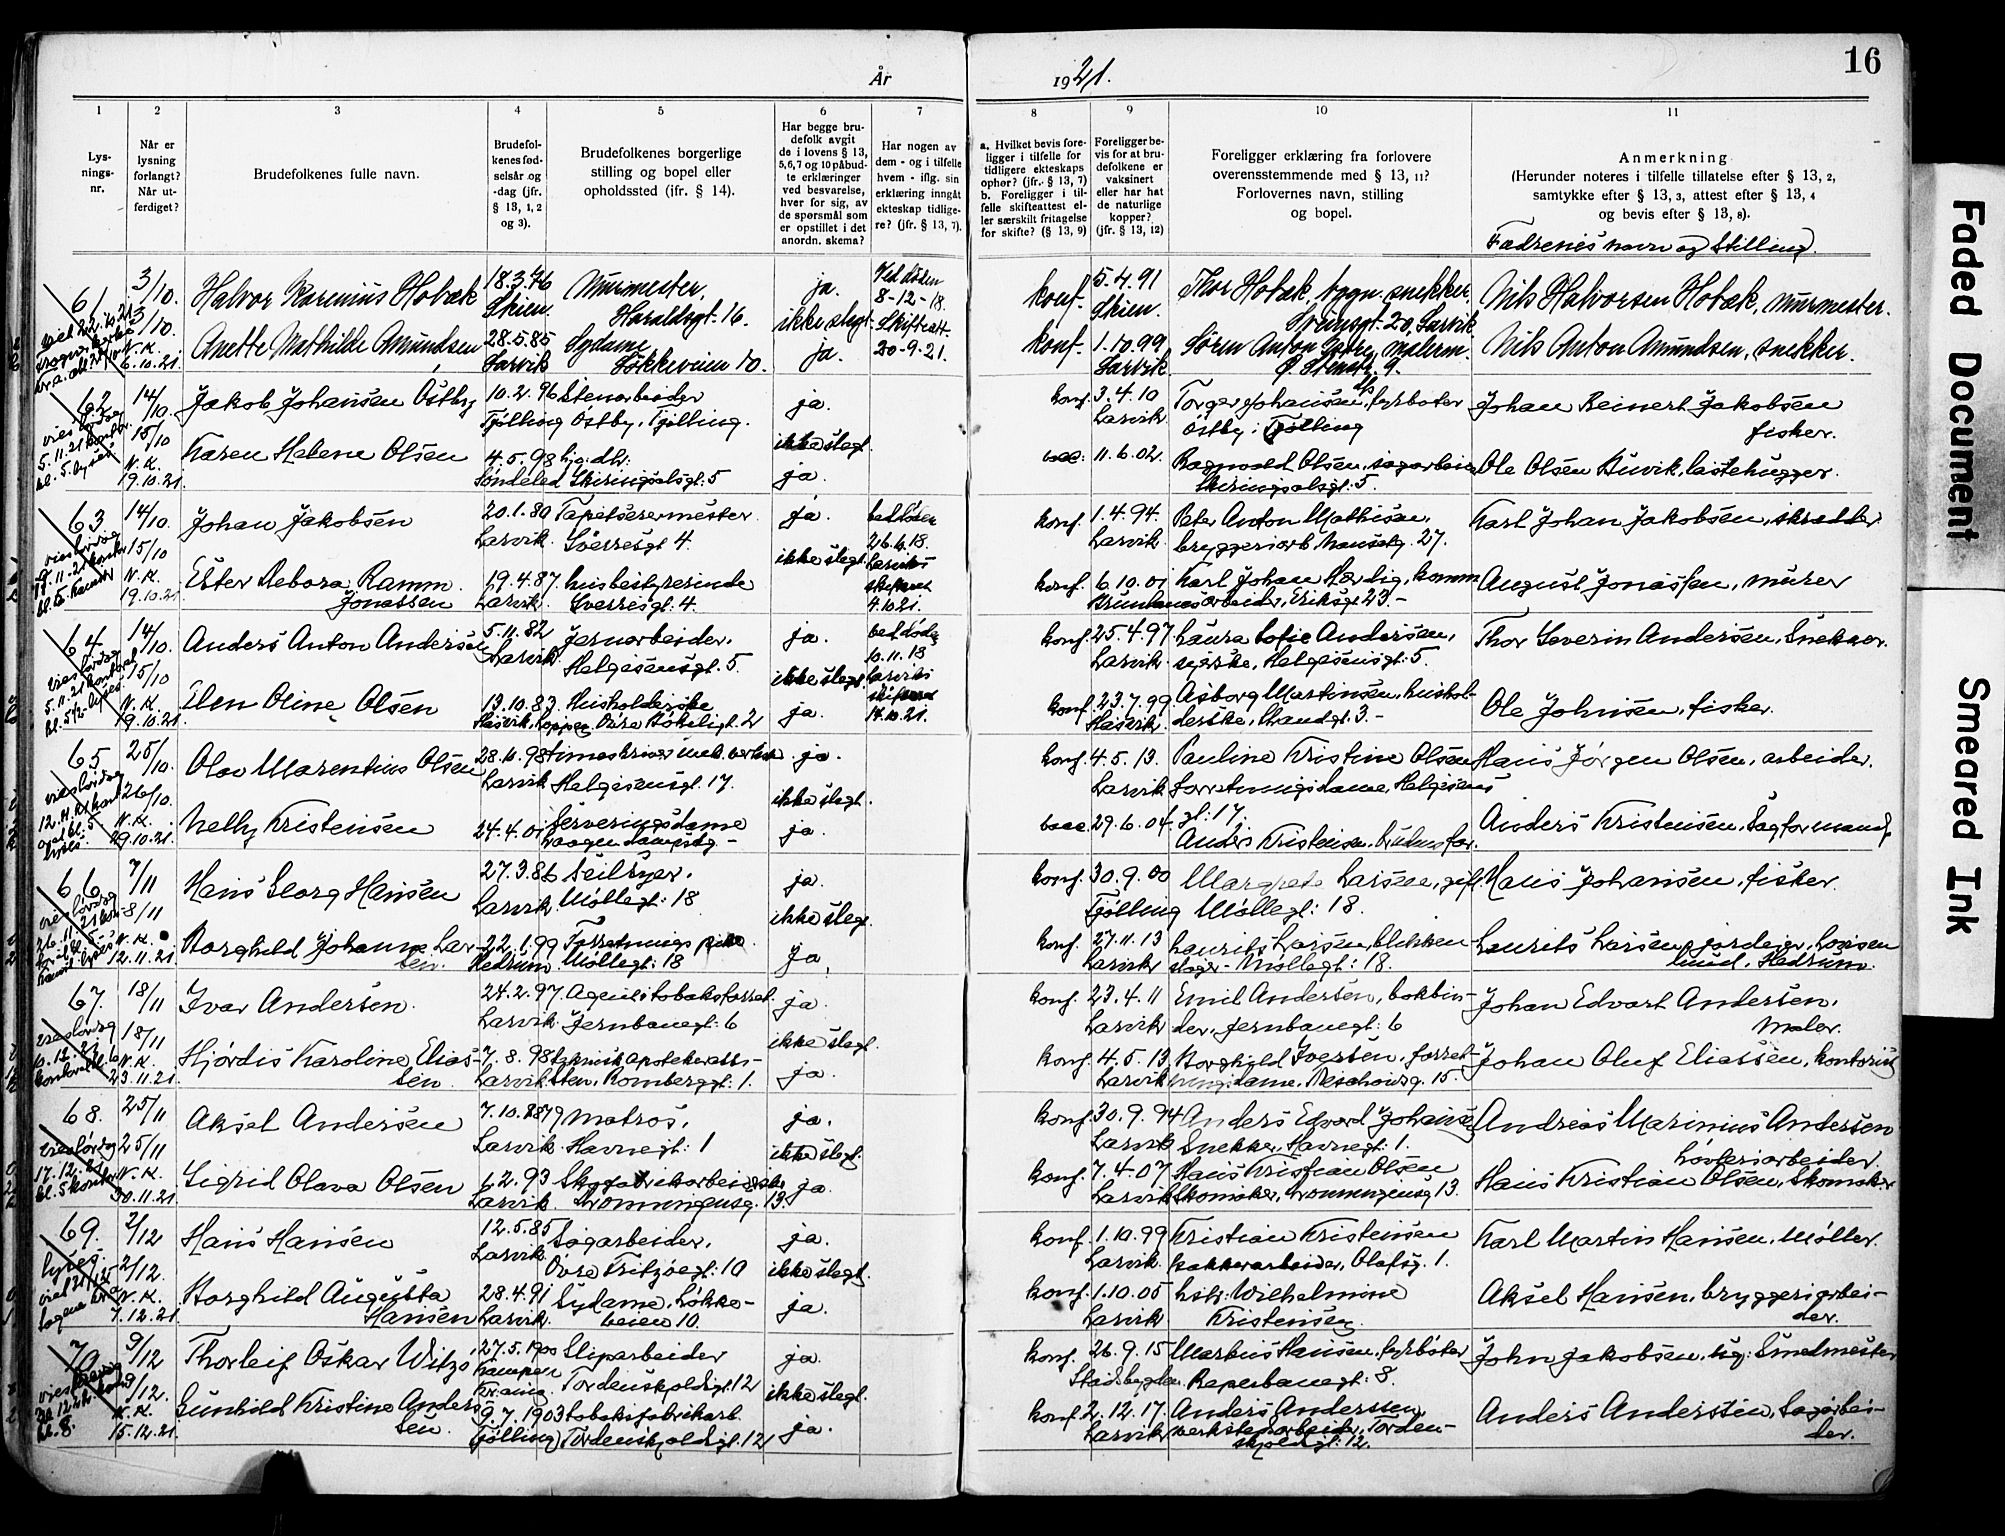 År 1921.
16
1 2 3 4 5 6 7 8 9 10 11
Lys-
nings-
nr.
Når er
lysning
forlangt?
Når ut-
ferdiget?
Brudefolkenes fulle navn.
Brudefol-
kenes fød-
selsår og
-dag (jfr.
§ 13, 1, 2
og 3).
Brudefolkenes borgerlige
stilling og bopel eller
opholdssted (jfr. § 14).
Har begge bru-
defolk avgit
de i lovens § 13,
5,6,7 og 10 påbud-
te erklæringer
ved besvarelse,
hver for sig, av
de spørsmål som
er opstillet i det
anordn. skema?
Har nogen av
dem - og i tilfelle
hvem - iflg. sin
erklæring inngåt
ekteskap tidlige-
re? (jfr. § 13, 7).
a. Hvilket bevis fore-
ligger i tilfelle for
tidligere ekteskaps
ophør? (jfr. § 13, 7)
b. Foreligger i til-
felle skifteattest el-
ler særskilt fritagelse
for skifte? (§ 13, 9)
Foreligger be-
vis for at bru-
defolkene er
vaksinert
eller har hat
de naturlige
kopper?
(jfr. § 13, 12)
Foreligger erklæring fra forlovere
overensstemmende med § 13, 11?
Forlovernes navn, stilling
og bopel.
Anmerkning
(Herunder noteres i tilfelle tillatelse efter § 13, 2,
samtykke efter § 13, 3, attest efter § 13, 4
og bevis efter § 13, 8).
Fædrenes navn og Stilling.
61 3/10. Halvor Karenius Hobæk 18.3.76 Murmester, ja. Ved døden konf. 5.4.91 Thor Hobæk, bygn. snekker, Nils Halvorsen Hobæk, murmester.
Skien. Haraldsgt. 16. 8-12-18. Skien. Sveinsgt. 20, Larvik
3/10. ikke slegt. Skifteatt.
Anette Mathilde Amundsen 28.5.85 Sydame ja. 20-9-21. konf. 1.10.99 Søren Anton malerm. Nils Anton Amundsen, snekker.
6.10.21. Larvik Løkkeveien 10. Larvik. Ø. Stenstr. 9.
62 14/10. Jakob Johansen Østby 10.2.96 Stenarbeider ja. konf. 3.4.10 Torger Johansen, fyrbøter Johan Reinert Jakobsen
Tjølling Østby, Tjølling. Larvik Østby i Tjølling fisker.
5.11.21 15/10 ikke slegt
Karen Helene Olsen 4.5.98 ja. vacc. 11.6.02. Ragnvald Olsen, sagarbeider Ole Olsen Buvik, lastehugger.
N.K. 19.10.21. Søndeled Skiringsalsgt. 5 Skiringsalsgt. 5.
63 14/10. Johan Jakobsen 20.1.80 Tapetserermester ja. ved døden konf. 1.4.94. Peter Anton Mathisen, Karl Johan Jakobsen, skrædder
Larvik. Sverresgt 4. 26.6.18. Larvik bryggeriarb. 27.
15/10 ikke slegt Larviks
Ester Debora Ramm 19.4.87 husbestyrerinde skifteret konf. 6.10.01 Karl Johan Hærdig, komm. August Jonassen, murer
N.K. 19.10.21 Jonassen Larvik. Sverresgt. 4. 4.10.21. Brunlanes arbeider, Eriksgt 23.-
64 14/10. Anders Anton Andersen 5.11.82 Jernarbeider. ja. ved døden konf. 25.4.97 Laura Sofie Andersen, Thor Severin Andersen, Snekker.
Larvik. Helgesensgt. 5. 10.11.18 Larvik syerske, Helgesensgt. 5.
5.11.21 15/10 ikke slegt. Larviks
Elen Oline Olsen 13.10.83 Husholderske ja. skifteret konf. 23.7.99 Asborg Martinsen, hushol- Ole Johnsen, fisker.
N.K. 19.10.21. Hasvik, Loppen. Øvre Bøkeligt. 2 14.10.21. Hasvik derske, Strandgt. 3.-
65 25/10. Olav Marentius Olsen 28.10.98 timeskriver mek. verksted ja. konf. 4.5.13. Pauline Kristine Olsen Hans Jørgen Olsen, arbeider.
Larvik Helgesensgt. 17. Larvik forretningsdame, Helgesens
26/10. ikke slegt. gt. 17.
Nelly Kristensen 24.4.01 Serveringsdame ja. vacc. 29.6.04. Anders Kristensen, brudens far. Anders Kristensen, Sagformand,
N.K. 29.10.21.
66 7/11 Hans Georg Hansen 27.3.86 Seilsyer. ja. konf. 30.9.00 Margrete Larsen, gift. Hans Johansen, fisker.
Larvik. Møllegt: 18 Tjølling Møllegt: 18.
26.11.21 8/11 ikke slegt
Borghild Johanne Lar- 22.1.99 Forretnings ja. konf. 27.11.13 Laurits Larsen, blikken- Laurits Larsen, jordeier, Louisen-
N.K. 12.11.21 sen. Hedrum Møllegt: 18 Larvik slager - Møllegt: 18. lund, Hedrum.
67. 18/11 Ivar Andersen. 24.2.97 Agent i tobaksforret. ja. konf. 23.4.11 Emil Andersen, bokbin- Johan Edvart Andersen,
Larvik Jernbanegt: 6 Larvik der, Jernbanegt: 6 Maler.
18/11 ikke slegt.
Hjørdis Karoline Elias- 7.8.98 ja. konf. 4.5.13 Borghild Iversen, forret- Johan Oluf Eliassen, kontorist
N.K. 23.11.21. sen. Larvik sten, Rombergsgt. 1. Larvik ningsdame, 15.
68. 25/11 Aksel Andersen 7.10.1879 Matros, ja. konf. 30.9.94 Anders Edvard Johansen Andreas Marinius Andersen
Larvik Havnegt: 1 Larvik Snekker, Havnegt: 1. Løvteriarbeider
17.12.21 25/11 ikke slegt
Sigrid Olava Olsen 6.2.93 Skofabrikarbeiderske ja. konf. 7.4.07 Hans Kristian Olsen Hans Kristian Olsen, Skomaker
N.K. 30.11.21. Larvik Dronningensg. 13. Larvik Skomaker, Dronningensg 13.
69. 2/12 Hans Hansen 12.5.85 Sagarbeider, ja. konf. 1.10.99 Kristian Kristensen Karl Martin Hansen, Møller.
Larvik. Øvre Fritzøegt: 10 Larvik. bakkerarbeider, Olafsg. 1.
2/12. ikke slegt.
Borghild Augusta 28.4.91 Sydame, Løkke- ja. konf. 1.10.05 Wilhelmine Aksel Hansen, bryggeriarbei-
N.K. 7.12.21. Hansen Larvik. veien 10. Larvik Kristensen. der.
70 9/12 Thorleif Oskar Witzø 27.5.1900 Sliparbeider ja. konf. 26.9.15 Markus Hansen, fyrbøter John Jakobsen, Smedmester
Kampen Tordenskjoldsgt. 12 Stadsbygden. Reperbanegt: 8.
9/12. Kr.ania ikke slegt.
Gunhild Kristine Anders- 9.7.1903 tobaksfabrikarb. ja. konf. 2.12.17. Anders Anderssen, Anders Andersen, Sagarbei-
N.K. 15.12.21 sen. Tjølling. Tordenskjoldsgt. 12 Larvik verkstedarbeider, Torden- der.
skjoldsgt: 12.
Faded Document
Smeared Ink